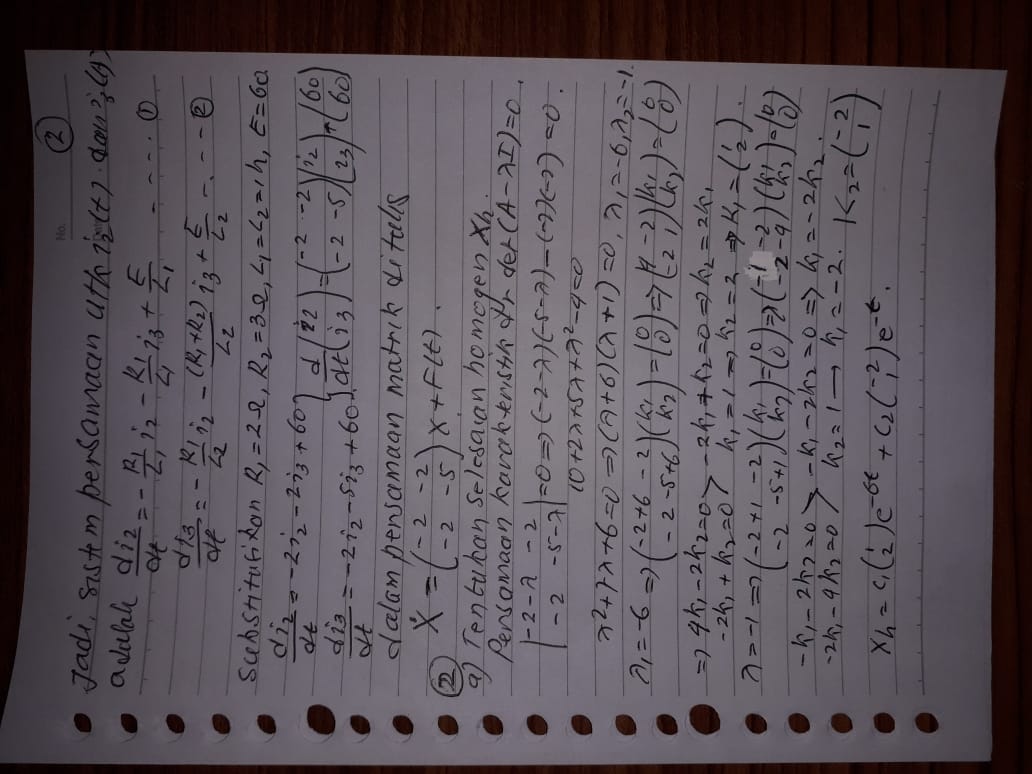 No.
②
Jadi, sistem persamaan utk i₂(t) dan i₃(t)
adalah di₂/dt = -R₁/L₁ i₂ - R₁/L₁ i₃ + E/L₁ - - - - ①
di₃/dt = -R₁/L₂ i₂ - (R₁+R₂)/L₂ i₃ + E/L₂ - - - - ②
Substitusikan R₁=2Ω, R₂=3Ω, L₁=L₂=1h, E=60.
di₂/dt = -2i₂-2i₃+60
di₃/dt = -2i₂-5i₃+60 } d/dt (i2 ; i3) = (-2 -2 ; -2 -5)(i2 ; i3) + (60 ; 60)
dalam persamaan matrik ditulis
Ẋ = (-2 -2 ; -2 -5) X + F(t).
②
a) Tentukan Selesaian homogen Xh.
Persamaan karakteristik dr det(A-λI)=0.
|-2-λ -2 ; -2 -5-λ| = 0 ⇒ (-2-λ)(-5-λ)-(-2)(-2) = 0.
10+2λ+5λ+λ²-4=0
λ²+7λ+6=0 ⇒ (λ+6)(λ+1)=0, λ₁=-6, λ₂=-1.
λ₁=-6 ⇒ (-2+6 -2 ; -2 -5+6)(k₁ ; k₂) = (0 ; 0) ⇒ (4 -2 ; -2 1)(k₁ ; k₂) = (0 ; 0)
⇒ 4k₁-2k₂=0 > -2k₁+k₂=0 ⇒ k₂=2k₁
-2k₁+k₂=0 k₁=1 ⇒ k₂=2 ⇒ K₁=(1 ; 2).
λ=-1 ⇒ (-2+1 -2 ; -2 -5+1)(k₁ ; k₂) = (0 ; 0) ⇒ (-1 -2 ; -2 -4)(k₁ ; k₂) = (0 ; 0)
-k₁-2k₂=0 > -k₁-2k₂=0 ⇒ k₁=-2k₂.
-2k₁-4k₂=0 k₂=1 → k₁=-2. K₂=(-2 ; 1)
Xh = c₁(1 ; 2)e^-6t + c₂(-2 ; 1)e^-t.